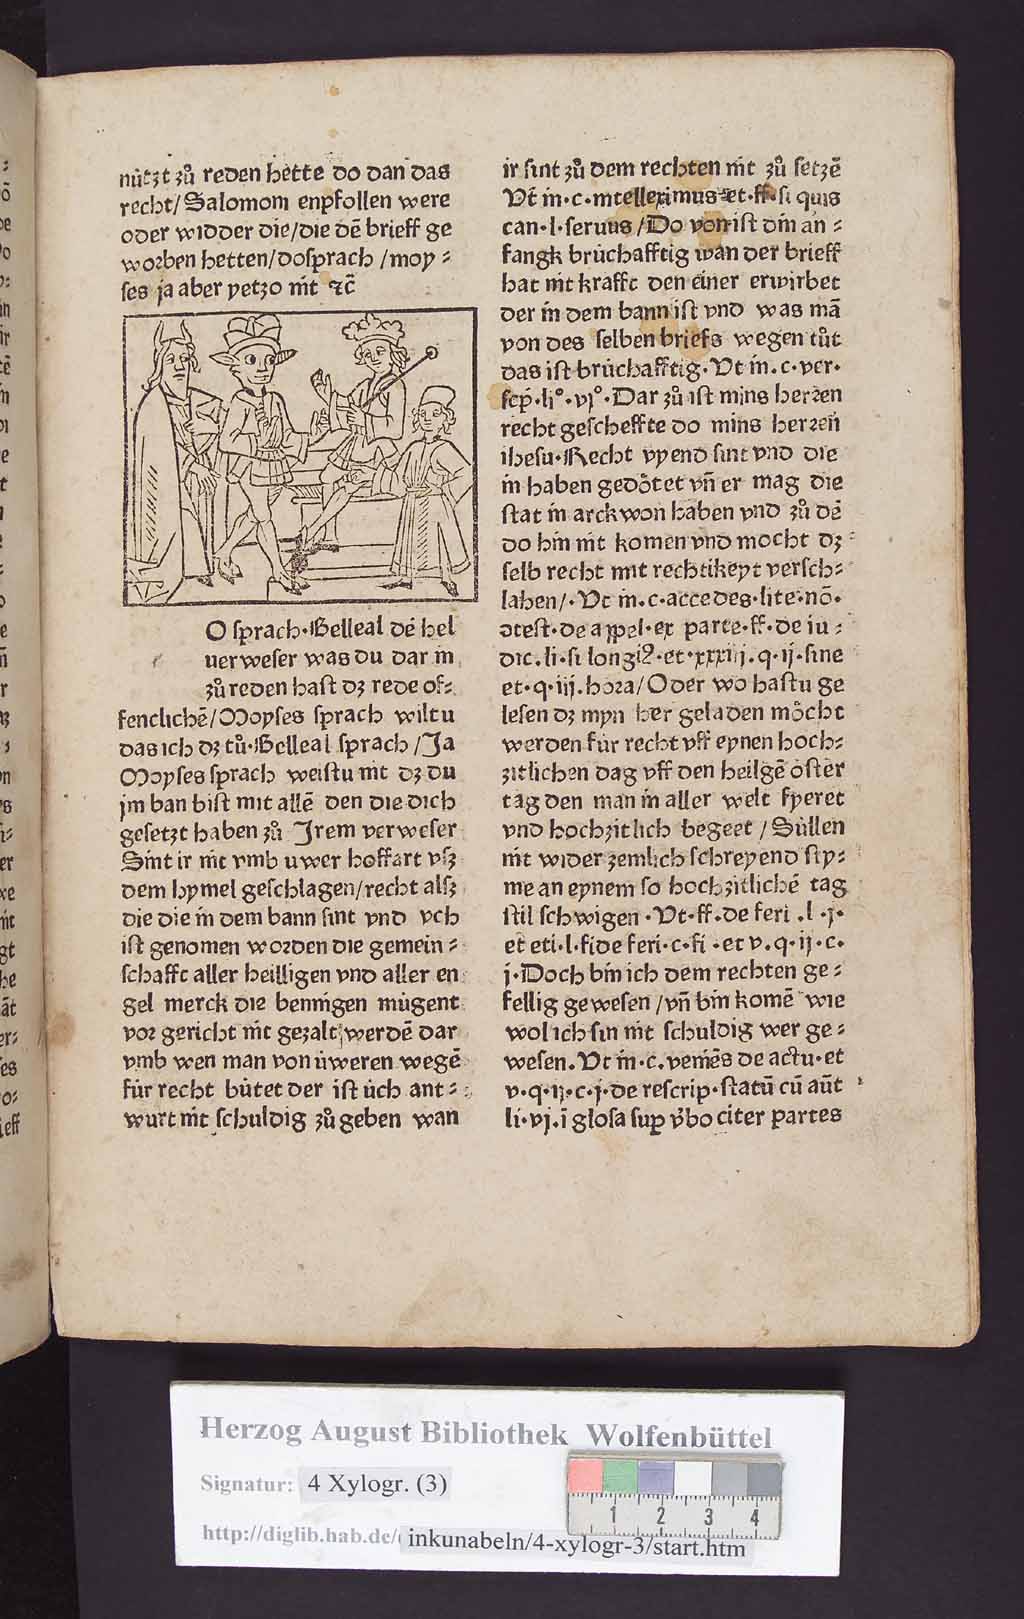 nútzt zů reden hette do dan das
recht/Salomom enpfollen were
oder widder die/die dē brieff ge
worben hetten/dosprach /moy⸗
ses ja aber yetzo nit ⁊c̄
O sprach·Belleal dē hel
uerweser was du dar in
zů reden hast dz rede of⸗
fenclichē/Moyses sprach wiltu
das ich dz tů·Belleal sprach/Ja
Moyses sprach weistu nit dz du
jm ban bist mit allē den die dich
gesetzt haben zů Jrem verweser
Sint ir nit vmb uwer hoffart vsz
dem hymel geschlagen/recht alsz
die die in dem bann sint vnd vch
ist genomen worden die gemein⸗
schafft aller heilligen vnd aller en
gel merck die bennigen mügent
vor gericht nit gezalt werdē dar
vmb wen man von üweren wegē
für recht bütet der ist üch ant⸗
wurt nit schuldig zů geben wan
ir sint zů dem rechten nit zů setzē
Vt in·c·intelleximus et·ff·si quis
can·l·seruus/Do von ist din an⸗
fangk brüchafftig wan der brieff
hat nit krafft den einer erwirbet
der in dem bann ist vnd was mā
von des selben briefs wegen tůt
das ist brüchafftig·Vt in.c·ver·
scp̄·liº·vjº·Dar zů ist mins herren
recht gescheffte do mins herren
ihesu·Recht vyend sint vnd die
in haben gedötet vn̄ er mag die
stat in arckwon haben vnd zů dē
do hin nit komen vnd mocht dz
selb recht mit rechtikeyt versch⸗
lahen/·Vt in.c·accedes·lite·nō·
ɔtest·de appel·ex parte·ff·de iu⸗
dic.li·si longiꝰ·et·xxxiij.q·ij·sine
et·q·iij.hora/Oder wo hastu ge
lesen dz myn her geladen möcht
werden für recht vff eynen hoch⸗
zitlichen dag vff den heilgē oster
tag den man in aller welt fyeret
vnd hochzitlich begeet/Süllen
nit wider zemlich schreyend sty⸗
me an eynem so hochzitlichē tag
stil schwigen·Vt·ff·de feri.l·j·
et eti·l·fi de feri·c·fi·et v.q·ij·c·
j·Doch bin ich dem rechten ge⸗
fellig gewesen/vn̄ bin komē wie
wol ich sin nit schuldig wer ge⸗
wesen.Vt in·c.venie̅s de actu·et
v·q·ij·c·j·de rescrip·statū cū aūt
li·vj.ī glosa sup v̄bo citer partes
Herzog August Bibliothek Wolfenbüttel
Signatur: 4 Xylogr. (3)
http://diglib.hab.de/ inkunabeln/4-xylogr-3/start.htm
1 2 3 4